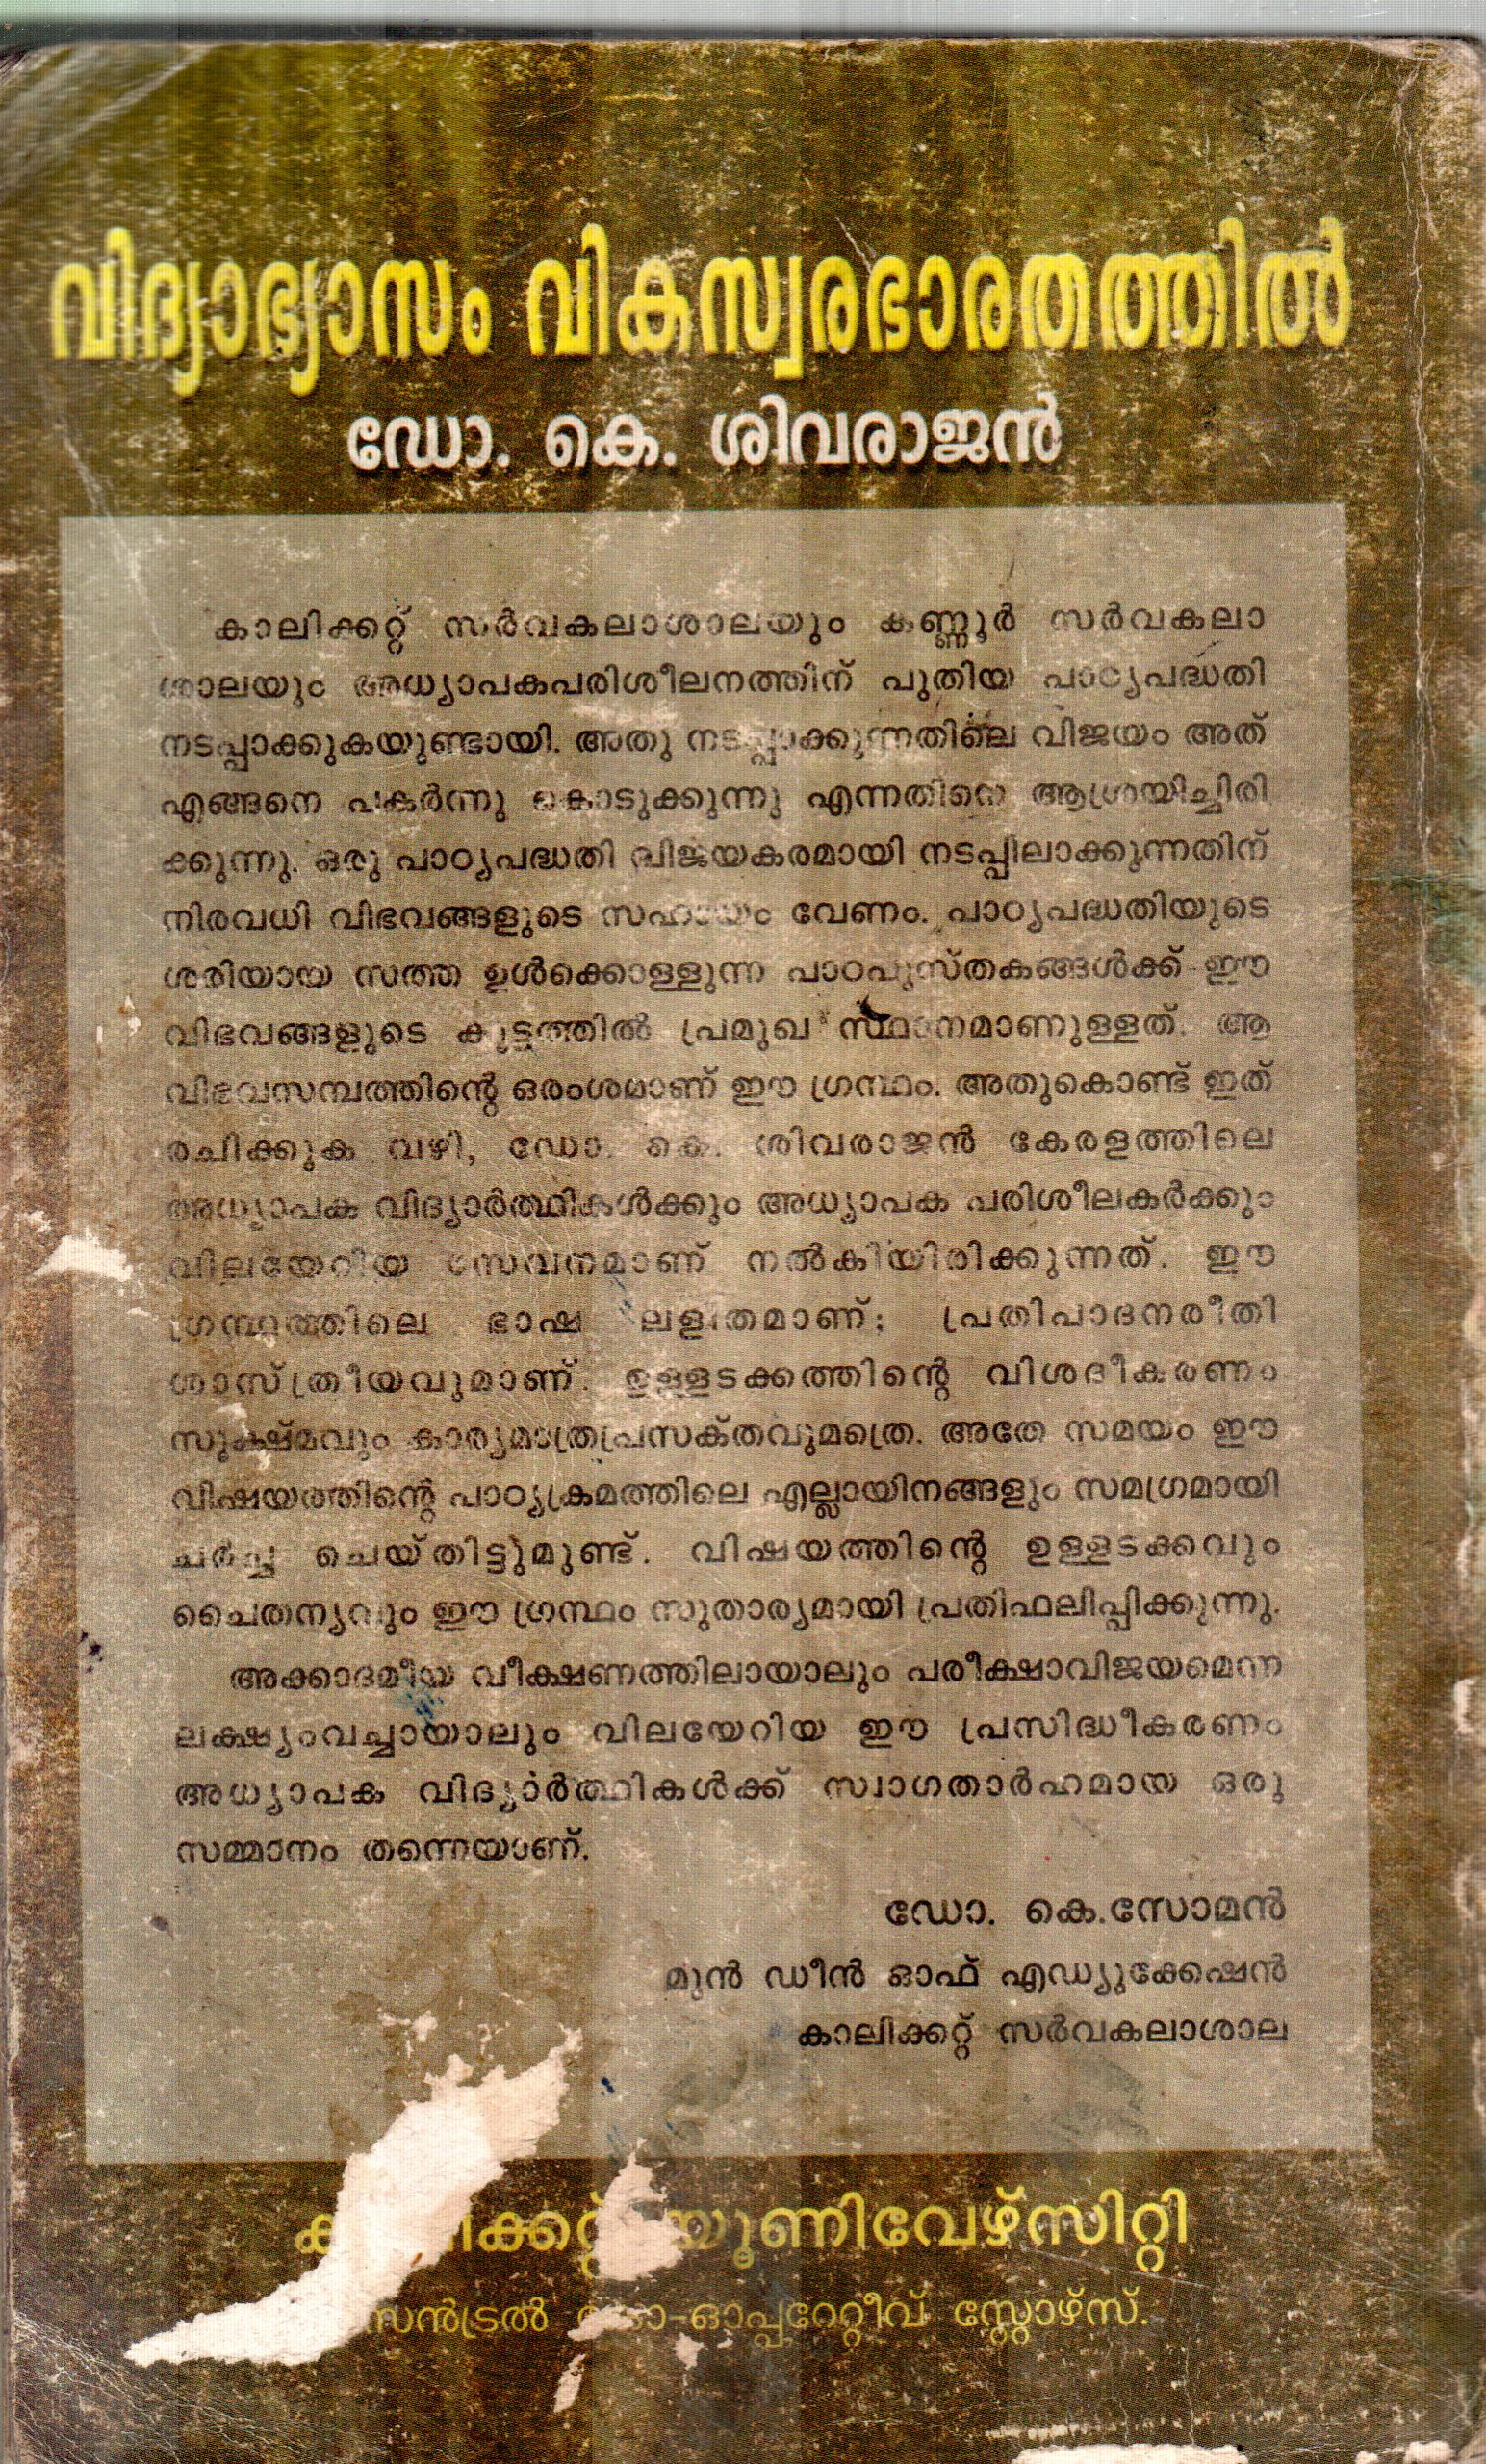 വിദ്യാഭ്യാസം വികസ്വരഭാരതത്തിൽ
ഡോ. കെ. ശിവരാജൻ
കാലിക്കറ്റ് സർവകലാശാലയും കണ്ണൂർ സർവകലാ
ശാലയും അധ്യാപകപരിശീലനത്തിന് പുതിയ പാഠ്യപദ്ധതി
നടപ്പാക്കുകയുണ്ടായി. അതു നടപ്പാക്കുന്നതിലെ വിജയം അത്
എങ്ങനെ പകർന്നു കൊടുക്കുന്നു എന്നതിനെ ആശ്രയിച്ചിരി
ക്കുന്നു. ഒരു പാഠ്യപദ്ധതി വിജയകരമായി നടപ്പിലാക്കുന്നതിന്
നിരവധി വിഭവങ്ങളുടെ സഹായം വേണം. പാഠ്യപദ്ധതിയുടെ
ശരിയായ സത്ത ഉൾക്കൊള്ളുന്ന പാഠപുസ്തകങ്ങൾക്ക് ഈ
വിഭവങ്ങളുടെ കൂട്ടത്തിൽ പ്രമുഖ സ്ഥാനമാണുള്ളത്. ആ
വിഭവസമ്പത്തിന്റെ ഒരംശമാണ് ഈ ഗ്രന്ഥം. അതുകൊണ്ട് ഇത്
രചിക്കുക വഴി, ഡോ. കെ. ശിവരാജൻ കേരളത്തിലെ
അധ്യാപക വിദ്യാർത്ഥികൾക്കും അധ്യാപക പരിശീലകർക്കും
വിലയേറിയ സേവനമാണ് നൽകിയിരിക്കുന്നത്. ഈ
ഗ്രന്ഥത്തിലെ ഭാഷ ലളിതമാണ്; പ്രതിപാദനരീതി
ശാസ്ത്രീയവുമാണ്. ഉള്ളടക്കത്തിന്റെ വിശദീകരണം
സൂക്ഷ്മവും കാര്യമാത്രപ്രസക്തവുമത്രെ. അതേ സമയം ഈ
വിഷയത്തിന്റെ പാഠ്യക്രമത്തിലെ എല്ലായിനങ്ങളും സമഗ്രമായി
ചർച്ച ചെയ്തിട്ടുമുണ്ട്. വിഷയത്തിന്റെ ഉള്ളടക്കവും
ചൈതന്യവും ഈ ഗ്രന്ഥം സുതാര്യമായി പ്രതിഫലിപ്പിക്കുന്നു.
അക്കാദമീയ വീക്ഷണത്തിലായാലും പരീക്ഷാവിജയമെന്ന
ലക്ഷ്യംവച്ചായാലും വിലയേറിയ ഈ പ്രസിദ്ധീകരണം
അധ്യാപക വിദ്യാർത്ഥികൾക്ക് സ്വാഗതാർഹമായ ഒരു
സമ്മാനം തന്നെയാണ്.
ഡോ. കെ.സോമൻ
മുൻ ഡീൻ ഓഫ് എഡ്യുക്കേഷൻ
കാലിക്കറ്റ് സർവകലാശാല
യൂണിവേഴ്സിറ്റി
സൻട്രൽ കോ-ഓപ്പറേറ്റീവ് സ്റ്റോഴ്സ്.